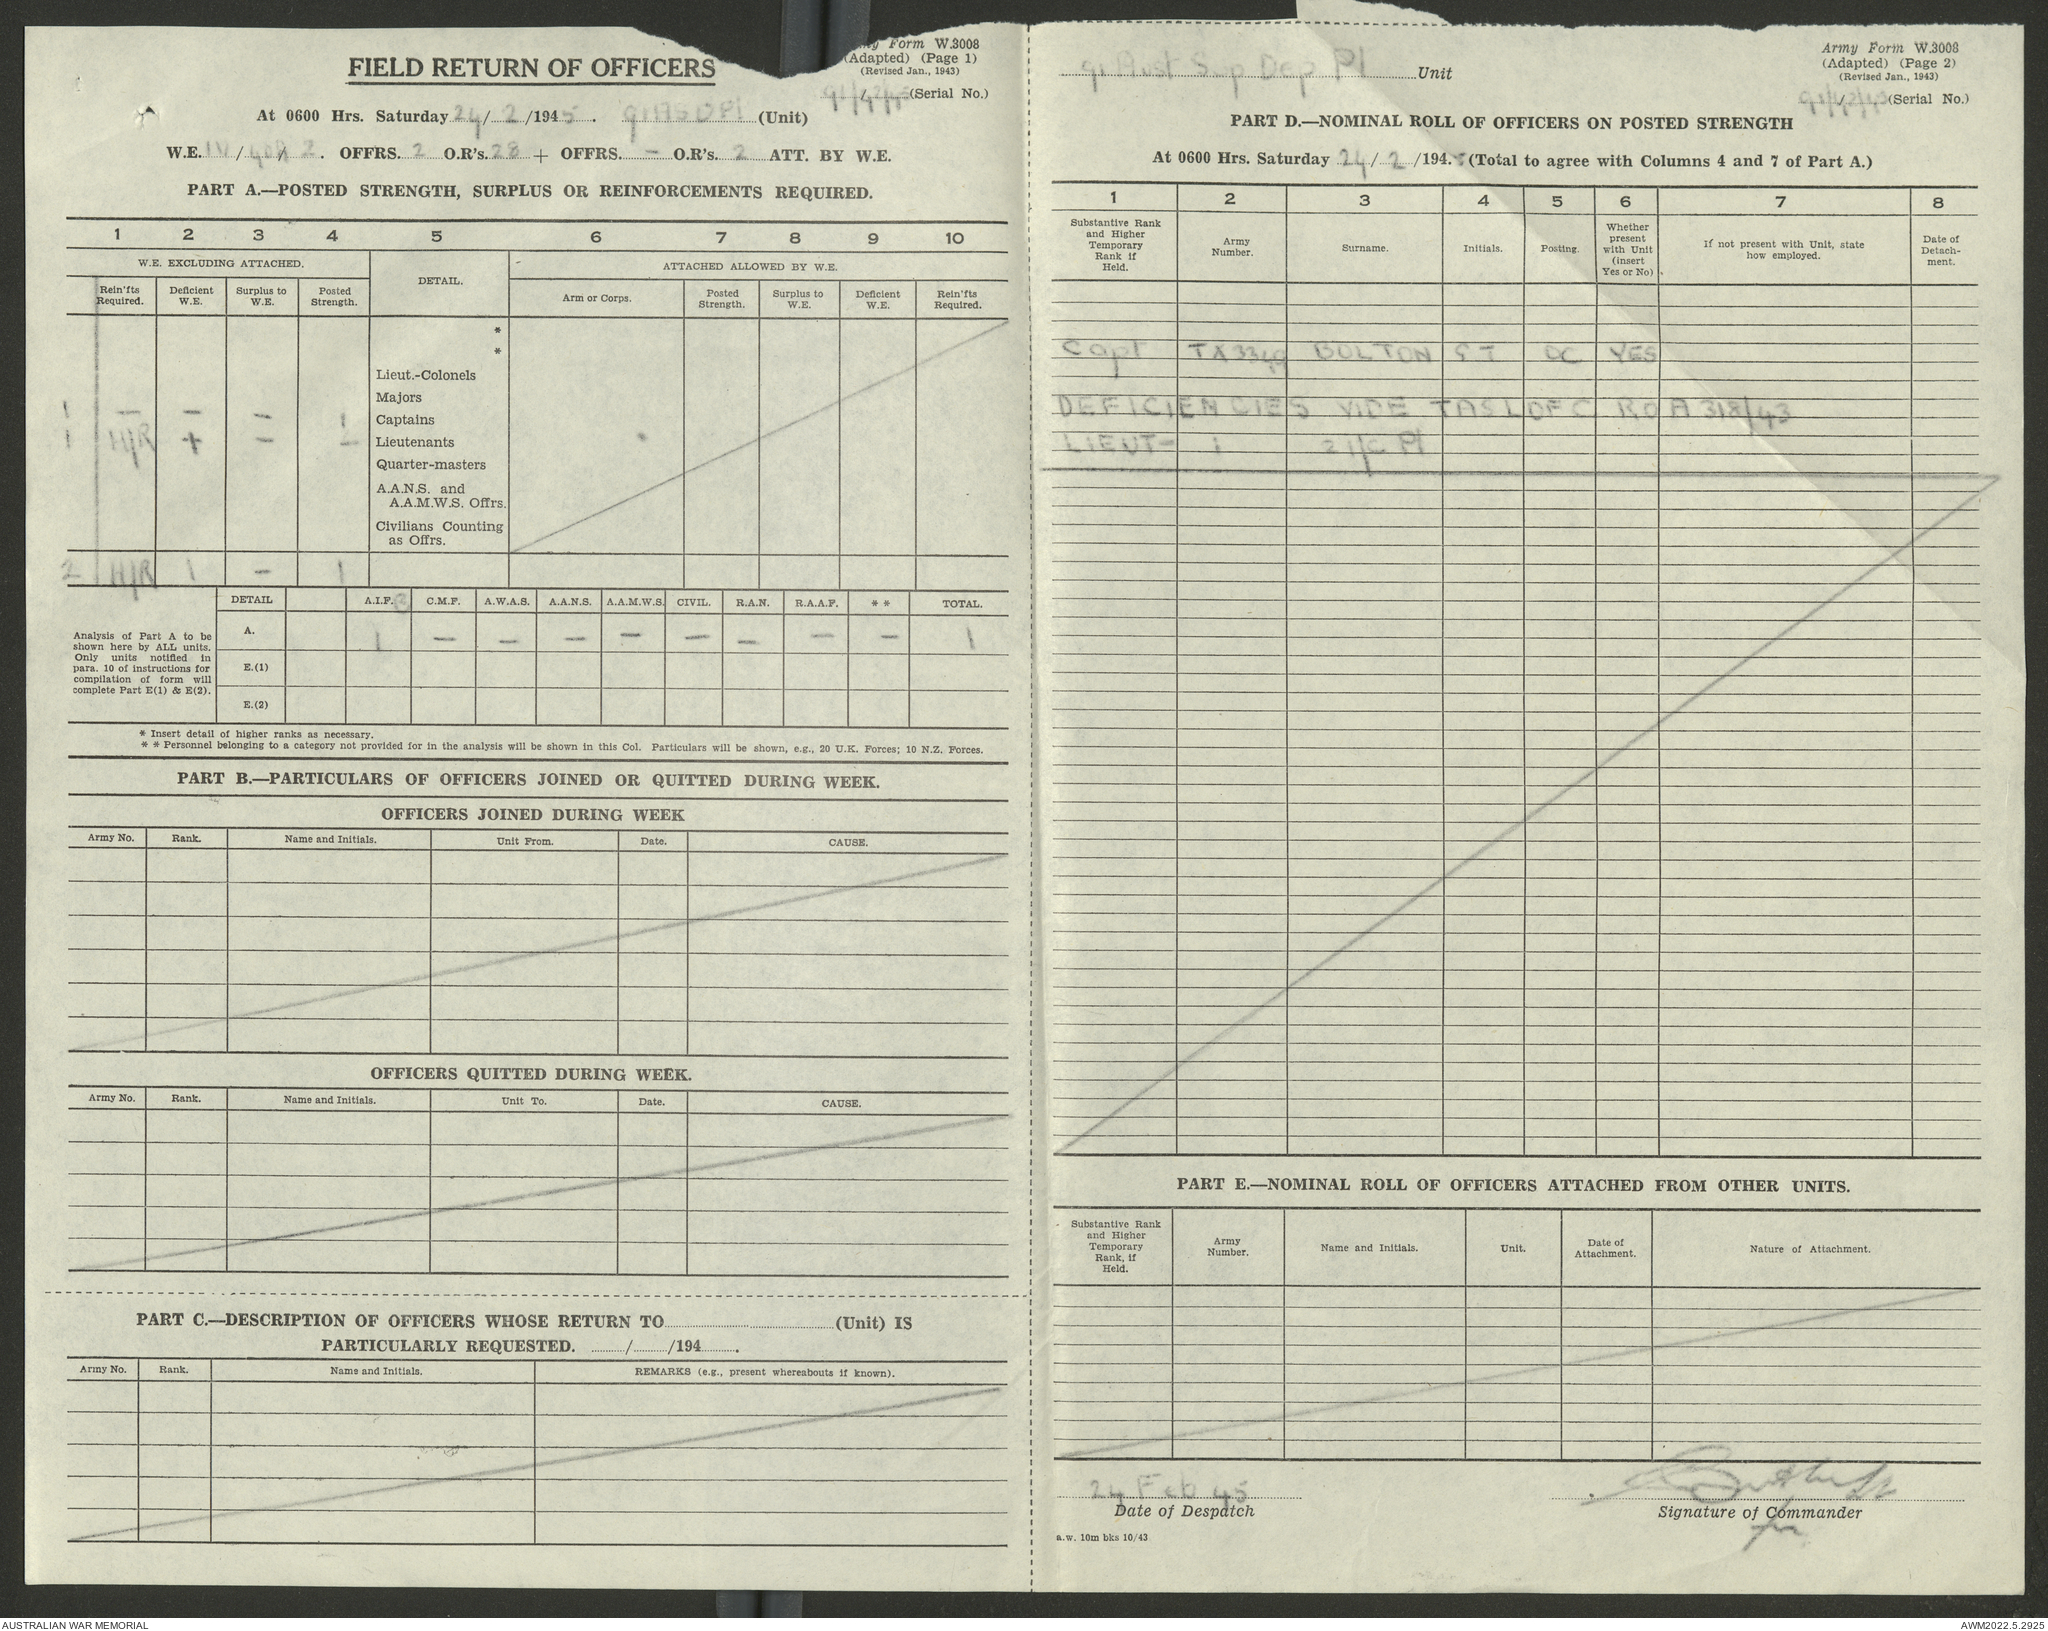 Army Form W.3008
(Adapted) (Page 1)
(Revised Jan., 1943)
FIELD RETURN OF OFFICERS
91/42/45 (Serial No.)
At 0600 Hrs. Saturday 24/2/1945. 91 AS D Pl (Unit)
W.E. IV/ / 2. OFFRS. 2 O.R's. 28 + OFFRS. - O.R's. 2 ATT. BY W.E.
PART A.—POSTED STRENGTH, SURPLUS OR REINFORCEMENTS REQUIRED.
1 2 3 4 5 6 7 8 9 10
W.E. EXCLUDING ATTACHED. DETAIL. ATTACHED ALLOWED BY W.E.
Rein'fts Required. Deficient W.E. Surplus to W.E. Posted Strength. Arm or Corps. Posted Strength. Surplus to W.E. Deficient W.E. Rein'fts Required.
*
*
Lieut.-Colonels
Majors
1 - - - 1 Captains
1 H/R + - - Lieutenants
Quarter-masters
A.A.N.S. and
A.A.M.W.S. Offrs.
Civilians Counting
as Offrs.
2 H/R 1 - 1
DETAIL A.I.F. C.M.F. A.W.A.S. A.A.N.S. A.A.M.W.S. CIVIL. R.A.N. R.A.A.F. * * TOTAL.
Analysis of Part A to be shown here by ALL units. Only units notified in para. 10 of instructions for compilation of form will complete Part E(1) & E(2).
A. 1 - - - - - - - - 1
E.(1)
E.(2)
* Insert detail of higher ranks as necessary.
* * Personnel belonging to a category not provided for in the analysis will be shown in this Col. Particulars will be shown, e.g., 20 U.K. Forces; 10 N.Z. Forces.
PART B.—PARTICULARS OF OFFICERS JOINED OR QUITTED DURING WEEK.
OFFICERS JOINED DURING WEEK
Army No. Rank. Name and Initials. Unit From. Date. CAUSE.
OFFICERS QUITTED DURING WEEK.
Army No. Rank. Name and Initials. Unit To. Date. CAUSE.
PART C.—DESCRIPTION OF OFFICERS WHOSE RETURN TO (Unit) IS
PARTICULARLY REQUESTED. / /194 .
Army No. Rank. Name and Initials. REMARKS (e.g., present whereabouts if known).
Army Form W.3008
(Adapted) (Page 2)
(Revised Jan., 1943)
91 Aust Sup Dep Pl Unit
(Serial No.)
PART D.—NOMINAL ROLL OF OFFICERS ON POSTED STRENGTH
At 0600 Hrs. Saturday 24/2/1945 (Total to agree with Columns 4 and 7 of Part A.)
1 2 3 4 5 6 7 8
Substantive Rank and Higher Temporary Rank if Held. Army Number. Surname. Initials. Posting. Whether present with Unit (insert Yes or No) If not present with Unit, state how employed. Date of Detachment.
Capt TX3349 BOLTON ST OC YES
DEFICIENCIES VIDE TAS L OF C RO A 318/43
LIEUT- 1 2 I/C Pl
PART E.—NOMINAL ROLL OF OFFICERS ATTACHED FROM OTHER UNITS.
Substantive Rank and Higher Temporary Rank, if Held. Army Number. Name and Initials. Unit. Date of Attachment. Nature of Attachment.
24 Feb 45
Date of Despatch
Signature of Commander
for
a.w. 10m bks 10/43
AUSTRALIAN WAR MEMORIAL
AWM2022.5.2925